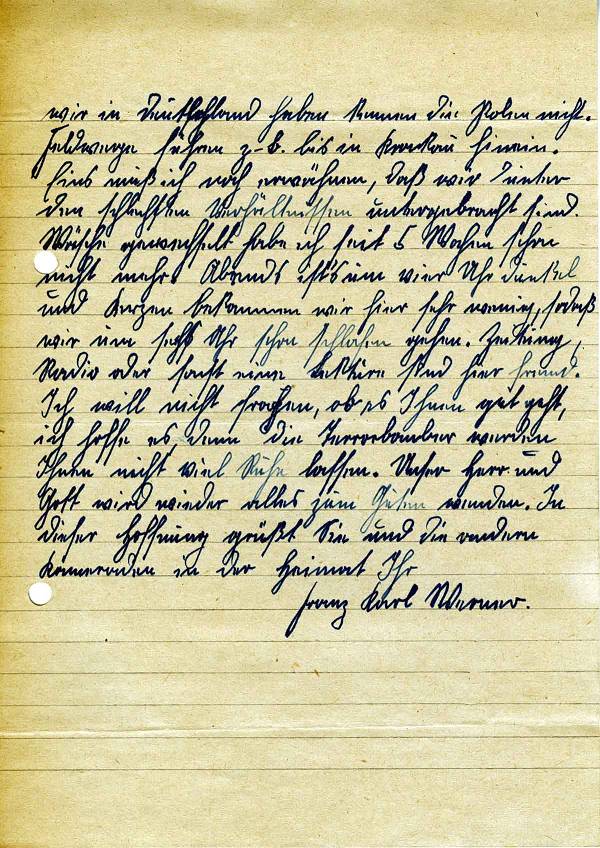 wir in Deutschland haben kennen die Polen nicht.
Feldwege führen z.B. bis in Krakau hinein.
Eins muß ich noch erwähnen, daß wir unter
den schlechsten Verhältnissen untergebracht sind.
Wäsche gewechselt habe ich seit 5 Wochen schon
nicht mehr. Abends ist's um vier Uhr dunkel
und Kerzen bekommen wir hier sehr wenig, sodaß
wir um sechs Uhr schon schlafen gehen. Zeitung,
Radio oder sonst eine Lektüre sind hier fremd.
Ich will nicht fragen, ob es Ihnen gut geht,
ich hoffe es, denn die Terrorbomber werden
Ihnen nicht viel Ruhe lassen. Unser Herr und
Gott wird wieder alles zum Guten wenden. In
dieser Hoffnung grüßt Sie und die andern
Kameraden in der Heimat Ihr
Franz Karl Werner.